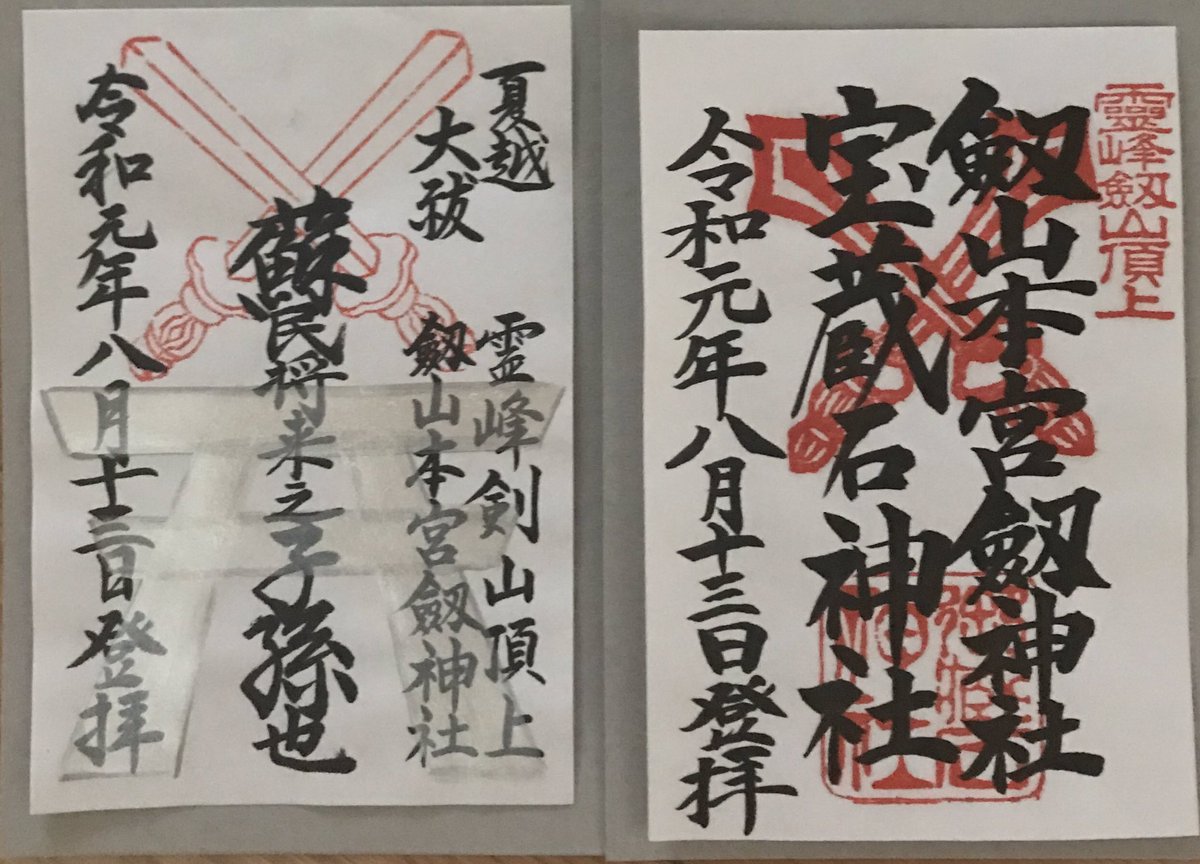 靈峰劔山頂上
劔山本宮劔神社
宝蔵石神社
令和元年八月十三日登拝
夏越
大祓
霊峰剣山頂上
劔山本宮劔神社
蘇民将来之子孫也
令和元年八月十三日登拝